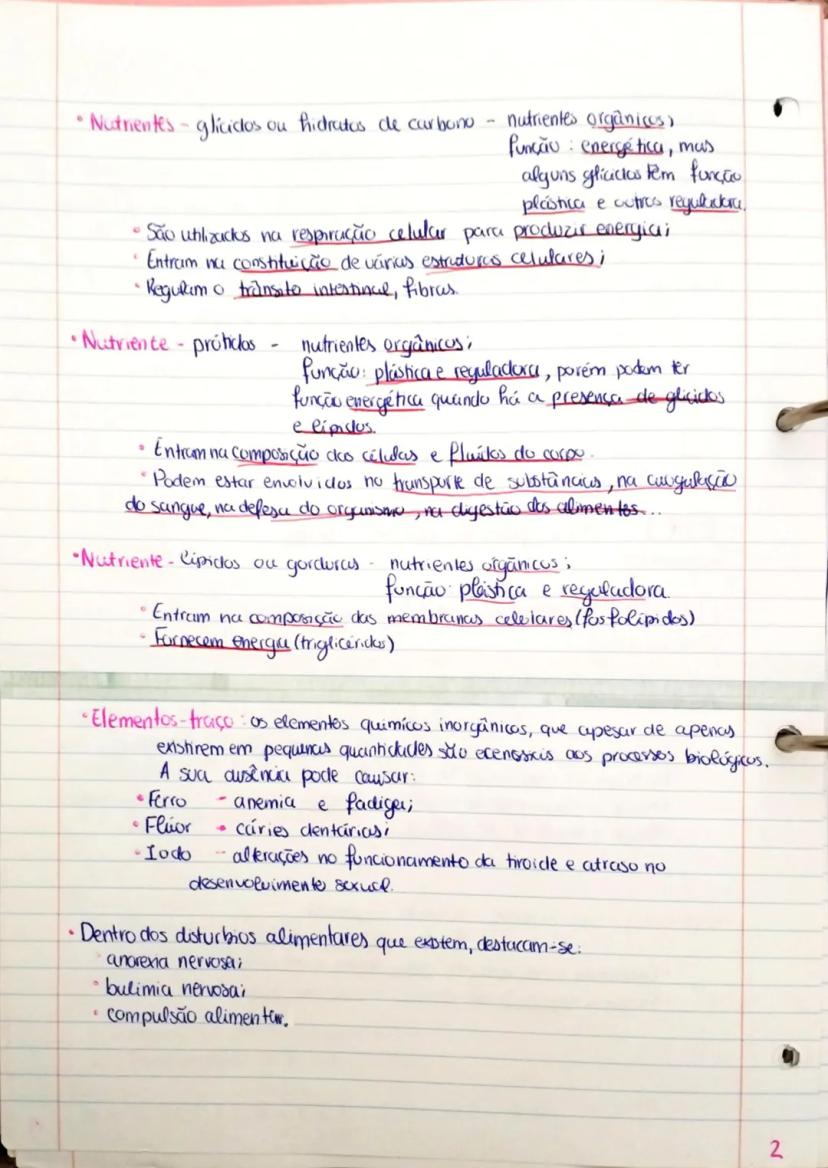 • Nutrientes - glícidos ou hidratos de carbono - nutrientes orgânicos;
função: energética, mas
alguns glícidos têm função
plástica e outros reguladora.
• São utilizados na respiração celular para produzir energia;
• Entram na constituição de várias estruturas celulares;
• Regulam o trânsito intestinal, fibras.
• Nutriente - prótidos - nutrientes orgânicos;
função: plástica e reguladora, porém podem ter
função energética quando há a presença de glícidos
e lípidos.
• Entram na composição das células e fluídos do corpo.
• Podem estar envolvidos no transporte de substâncias, na coagulação
do sangue, na defesa do organismo, na digestão dos alimentos...
• Nutriente - lípidos ou gorduras - nutrientes orgânicos;
função: plástica e reguladora.
• Entram na composição das membranas celelares (fosfolípidos)
• Fornecem energia (triglicéridos)
• Elementos-traço: os elementos químicos inorgânicos, que apesar de apenas
existirem em pequenas quantidades são ecenssais aos processos biológicos.
A sua ausência pode causar:
• Ferro - anemia e fadiga;
• Flúor - cáries dentárias;
• Iodo - alterações no funcionamento da tiroide e atraso no
desenvolvimento sexual.
• Dentro dos disturbios alimentares que existem, destacam-se:
• anorexia nervosa;
• bulimia nervosa;
• compulsão alimentar.
2